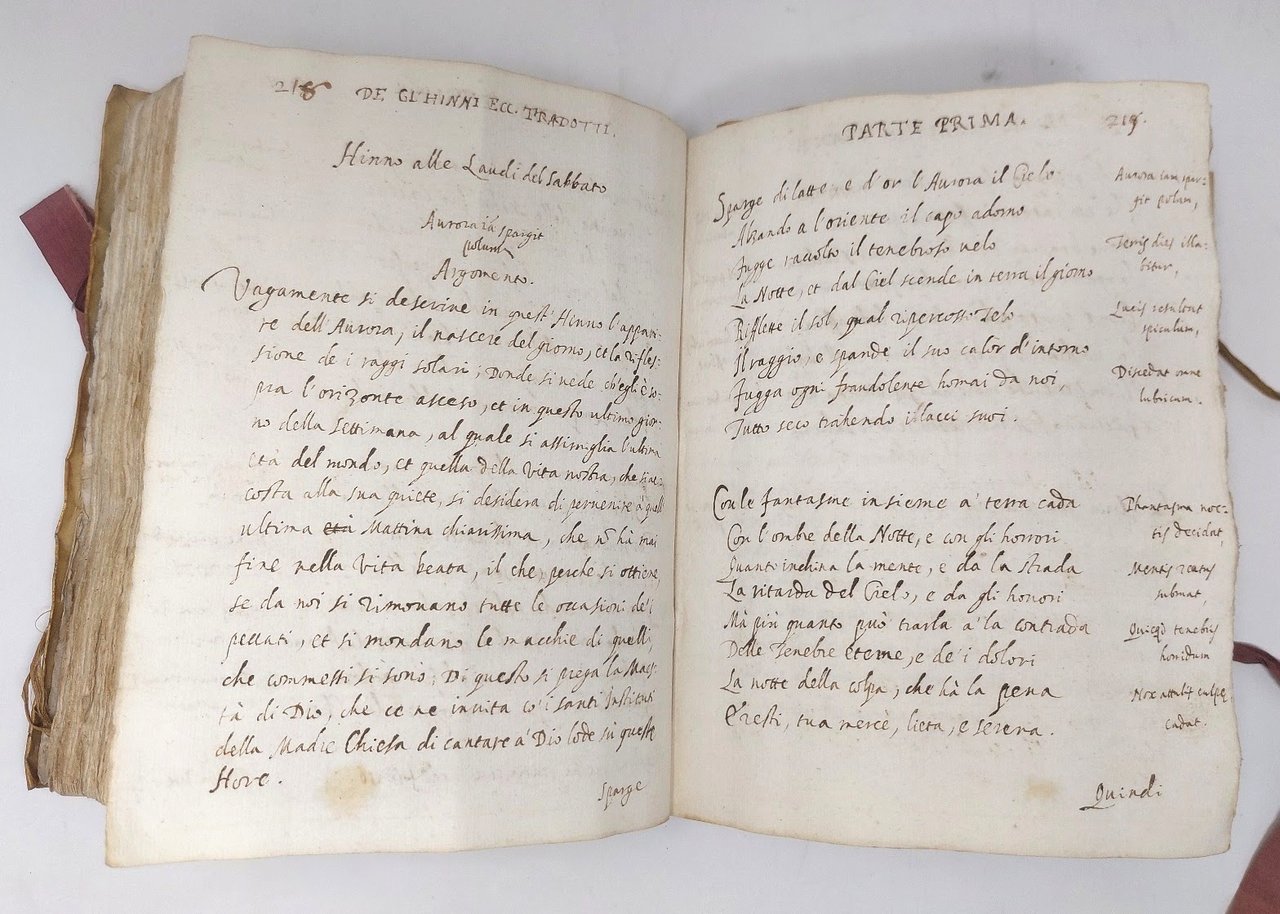 218 DE GL'HINNI ECC. TRADOTTI.
Hinno alle Laudi del Sabbato
Aurora iã spargit
polum
Argomento.
Vagamente si descrive in quest'Hinno l'appari-
re dell'Aurora, il nascere del giorno, et la rifles-
sione de i raggi solari; Donde si vede ch'egli è so-
pra l'orizonte asceso, et in questo ultimo gior-
no della Settimana, al quale si assimiglia l'ultima
età del mondo, et quella della Vita nostra, che si ac-
costa alla sua quiete, si desidera di pervenire à quell'
ultima età Mattina chiarissima, che nõ hà mai
fine nella Vita beata, il che, perche si ottiene,
se da noi si rimovano tutte le occasioni de'i
peccati, et si mondano le macchie di quelli,
che commessi si sono; Di questo si prega la Maes-
tà di Dio, che ce ne invita co'i santi Instituti
della Madre Chiesa di cantare à Dio lode sù queste
Hore.
Sparge
PARTE PRIMA. 219.
Sparge di latte, e d'or l'Aurora il Cielo
Alzando a l'oriente il capo adorno
Fugge raccolto il tenebroso velo
La Notte, et dal Ciel scende in terra il giorno
Riflette il sol, qual ripercosso telo
Il raggio, e spande il suo calor d'intorno
Fugga ogni fraudolente homai da noi,
Tutto seco trahendo i llacci suoi.
Aurora iam spar-
git polum,
Terris dies illa-
bitur,
Lucis resultat
spiculum,
Discedat omne
lubricum.
Con le fantasme insieme à terra cada
Con l'ombre della Notte, e con gli horrori
Quanto inchina la mente, e da la strada
La ritarda del Cielo, e da gli honori
Mà più quanto può trarla a'la contrada
Delle Tenebre eterne, e de'i dolori
La notte della colpa, che hà la pena
E resti, tua mercè, lieta, e serena.
Phantasma noc-
tis decidat,
Mentis reatus
subruat,
Quicqd tenebris
horridum
Nox attulit culpę
cadat.
Quindi